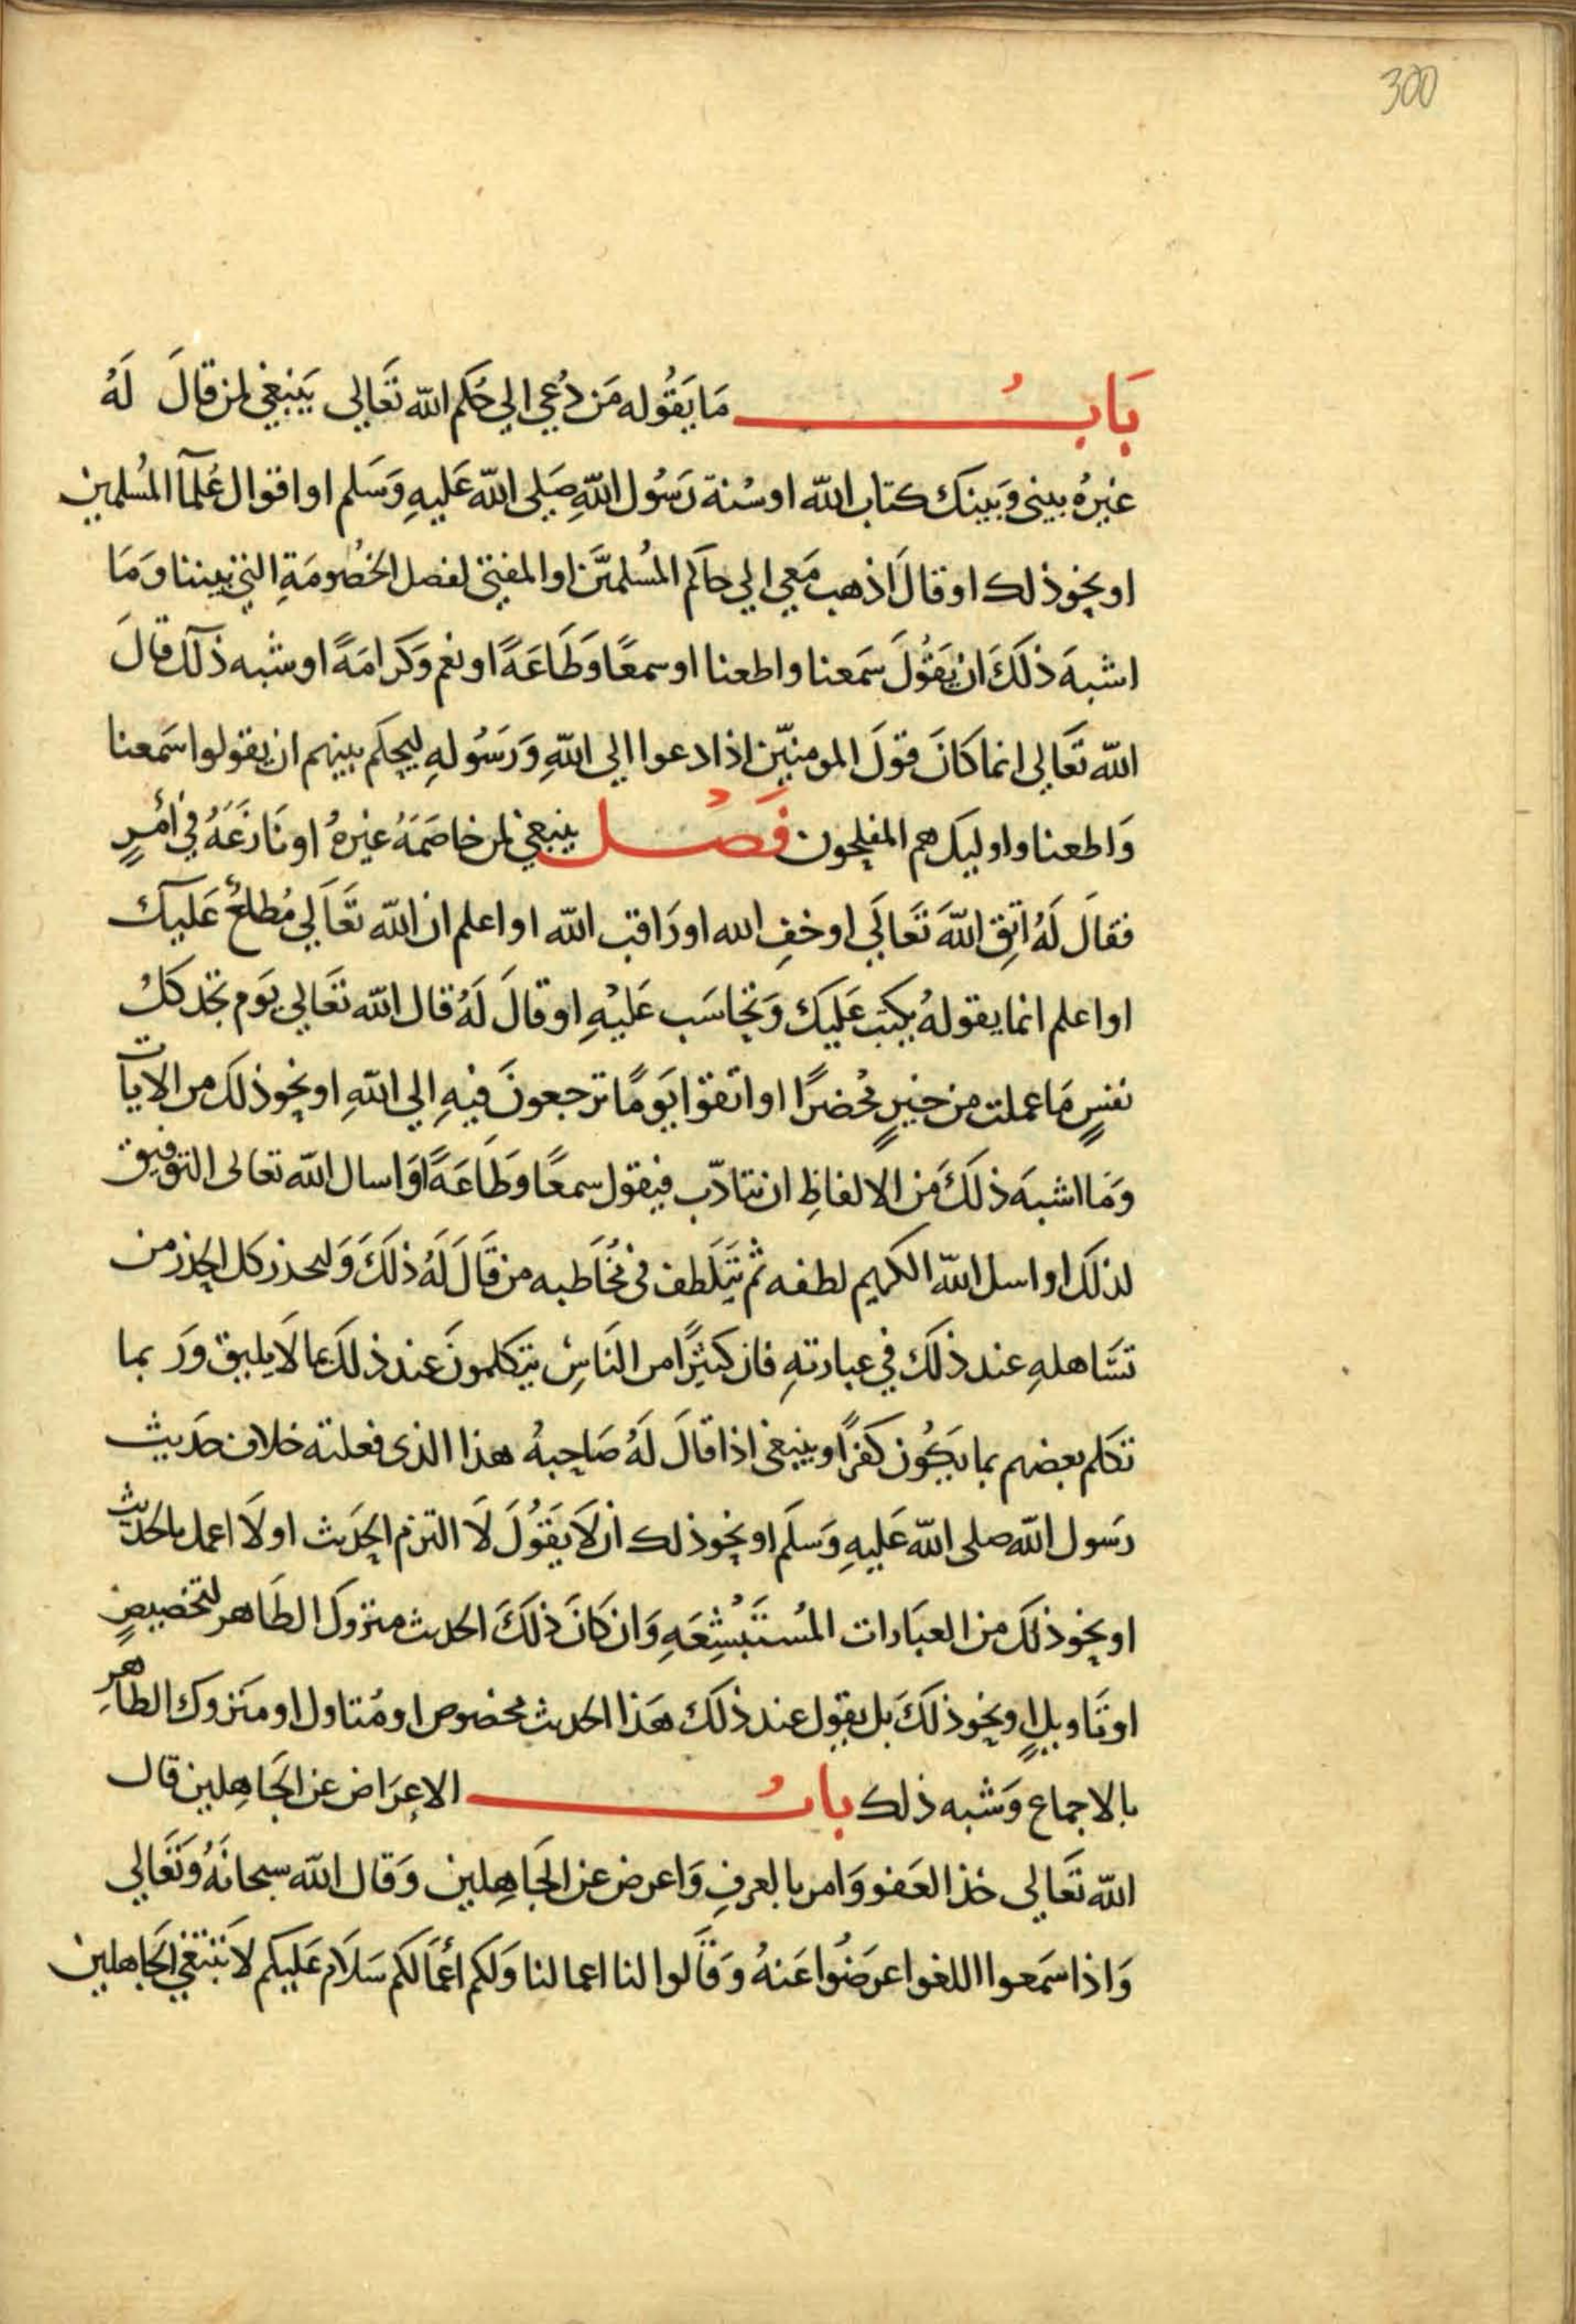 300
بَابُ مَا يَقُوله مَن دُعي الي حُكم الله تَعَالي يَنبغي لمن قالَ لَهُ
غيرهُ بيني وَبَينَك كتاب الله او سُنة رَسُول اللهِ صَلي الله عَليهِ وَسَلم او اقوال عُلمآ المُسلمين
او نحو ذلك او قالَ اذهب مَعي الي حاكم المُسلميَن او المفتي لفصل الخصُومَةِ التي بيننا وَمَا
اشبهَ ذلكَ ان يَقُولَ سَمَعنا واطعنا او سمعًا وَطَاعَةً او نعم وَكَرامَةً او شبه ذلك قالَ
الله تَعَالي انما كَانَ قولَ المومنيّن اذا دعوا الي اللهِ وَرَسُولهِ ليحكَم بينهم ان يقولوا سَمعنا
وَاطعنا واوليك هم المفلحون فَصْل ينبغي لمن خاصَمَهُ غيرهُ او نَازَعَهُ في أمْرٍ
فقالَ لَهُ اتقِ اللهَ تَعَالَي او خفِ الله او رَاقب الله او اعلم ان الله تَعَالَي مُطلعٌ عَليك
او اعلم انما يقولهُ يكتب عَلَيكَ وَتحاسَب عَليْهِ او قالَ لَهُ قال الله تعَالي يَوم تجد كلُ
نفسٍ مَا عملت من خيرٍ مُحضرًا او اتقوا يَومًا ترجعونَ فيهِ الي اللهِ او نحو ذلكَ من الايات
وَمَا اشبهَ ذلكَ مَن الالفاظِ ان يتادّب فيقول سمعًا وَطَاعَةً اوَ اسال الله تعالى التوفيق
لذلكَ او اسل الله الكريم لطفه ثم يتَلَطف في مُخَاطبه من قَالَ لَهُ ذلكَ وَليحذر كل الحذر من
تسَاهلهِ عند ذلكَ في عبارتهِ فان كثيرًا من النَاسِ يتكلمونَ عند ذلكَ بما لَا يليق وَربما
تكلم بعضهم بما يَكُون كفرًا وينبغي اذا قالَ لَهُ صَاحبهُ هذا الذي فعلته خلاف حَديث
رَسول الله صلى الله عَليهِ وَسَلَم او نحو ذلك ان لَا يَقُولَ لَا التزم الحَديث او لَا اعمل بالحديث
او نحو ذلكَ من العبَارات المُستَبْشِعَهِ وَان كَانَ ذلكَ الحديث متروك الظَاهر لتخصيصٍ
او تَاويلٍ او نحو ذلكَ بل يقول عند ذلكَ هَذا الحديث مخصوص او مُتاول او متروك الظاهرِ
بالاجماع وَشبه ذلك بابُ الاعرَاض عن الجَاهِلين قال
الله تَعَالي خذ العَفو وَامر بالعرفِ وَاعرض عن الجَاهِلين وَقال الله سبحانَهُ وَتَعَالي
وَاذا سَمعوا اللغو اعرَضُوا عَنهُ وَقَالوا لنا اعمالنا وَلَكم اعْمَالكم سَلَام عَليكم لا نَبتغي الجَاهلين